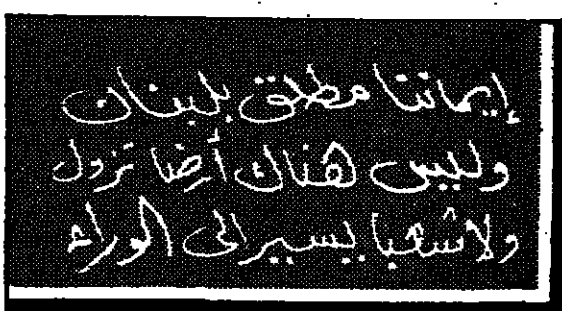 إيماننا مطلق بلبنان
وليس هناك أرضا تزول
ولا شعبا يسير الى الوراء